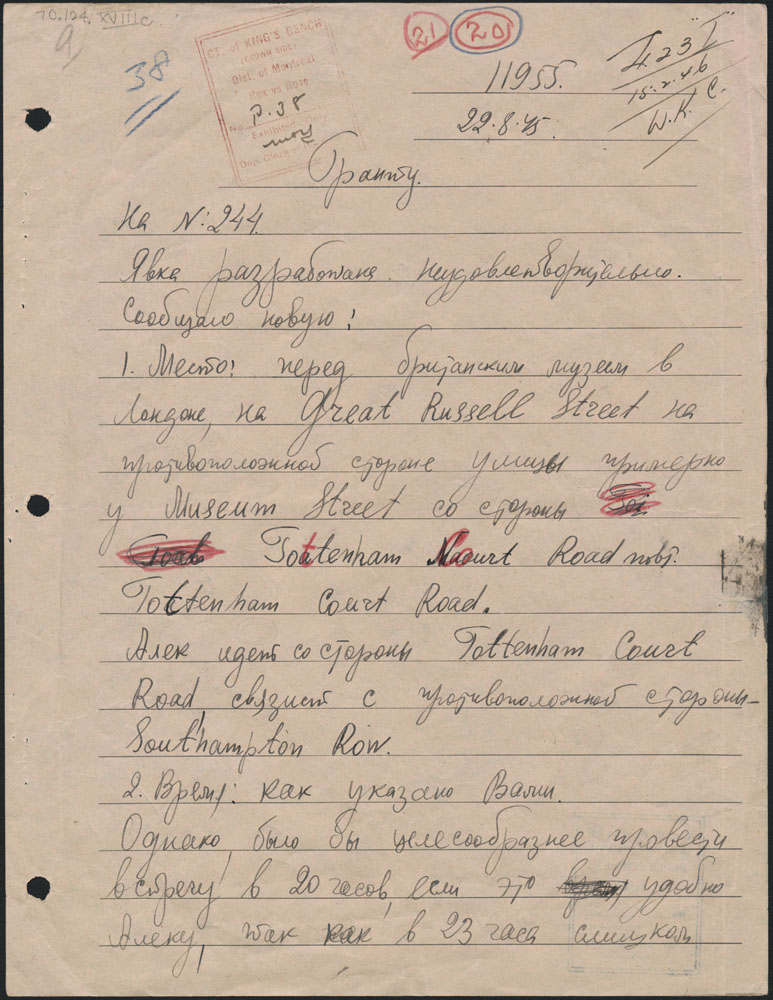 70.124. XVIIIc
9
38
CT. of KING'S BENCH
(CROWN SIDE)
Dist. of Montreal
Rex vs Rose
No. P.38
Exhibit
Dep. Clerk of
21 20
11955.
22.8.45.
423 I
15.2.46
W.K.C.
Гранту.
На N:244.
Явка разработана неудовлетворительно.
Сообщаю новую:
1. Место: перед британским музеем в
Лондоне, на Great Russell Street на
противоположной стороне улицы примерно
у Museum Street со стороны
Tottenham Court Road повт.
Tottenham Court Road.
Алек идет со стороны Tottenham Court
Road, связист с противоположной стороны –
Southampton Row.
2. Время: как указано Вами.
Однако, было бы целесообразнее провести
встречу в 20 часов, если это удобно
Алеку, так как в 23 часа слишком